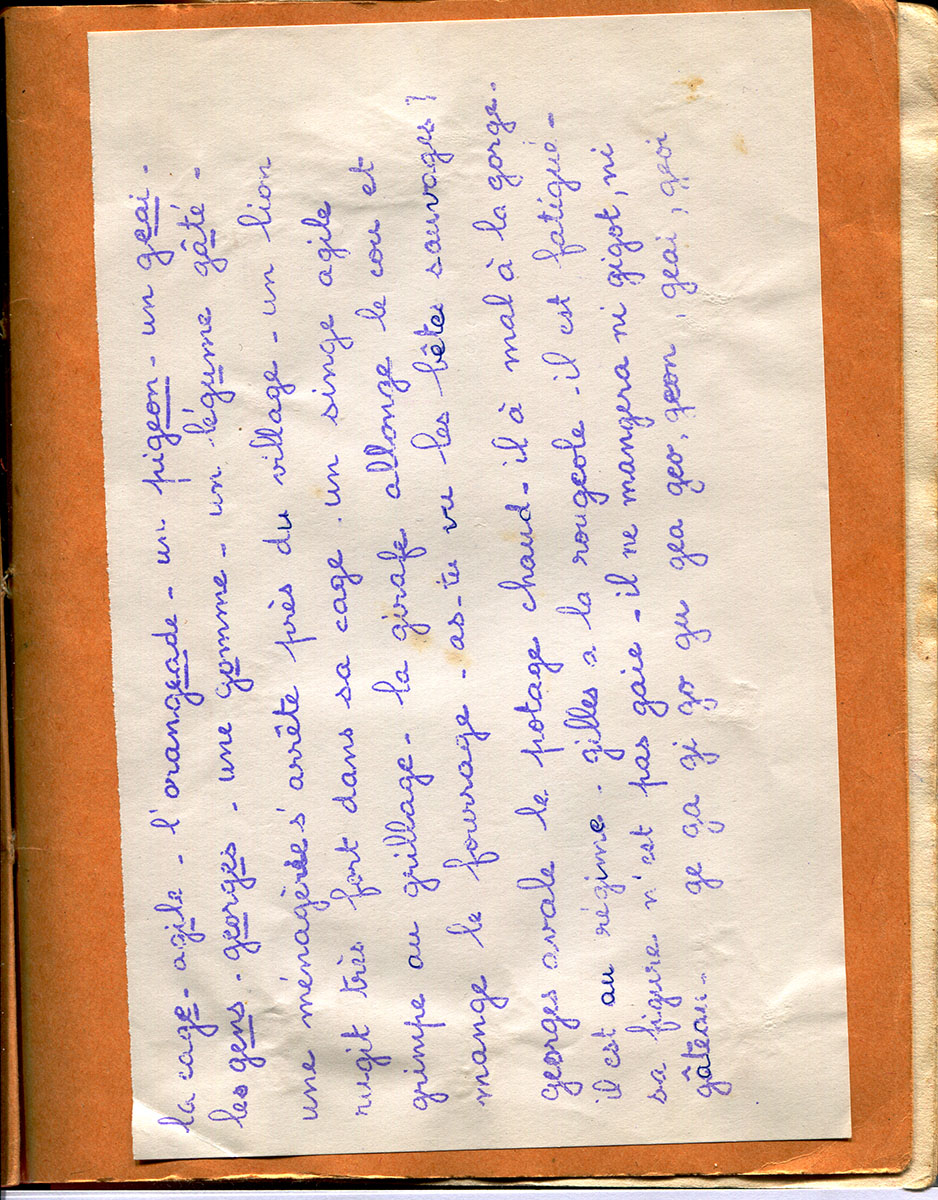 la cage - agile - l'orangeade - un pigeon - un geai -
les gens - georges - une gomme - un légume gâté -
une ménagerie s'arrête près du village - un lion
rugit très fort dans sa cage. un singe agile
grimpe au grillage - la girafe allonge le cou et
mange le fourrage - as-tu vu les bêtes sauvages?
georges avale le potage chaud - il à mal à la gorge -
il est au régime - gilles a la rougeole - il est fatigué -
sa figure n'est pas gaie - il ne mangera ni gigot, ni
gâteau - ge ga gi go gu gea geo, geon, geai, geoi